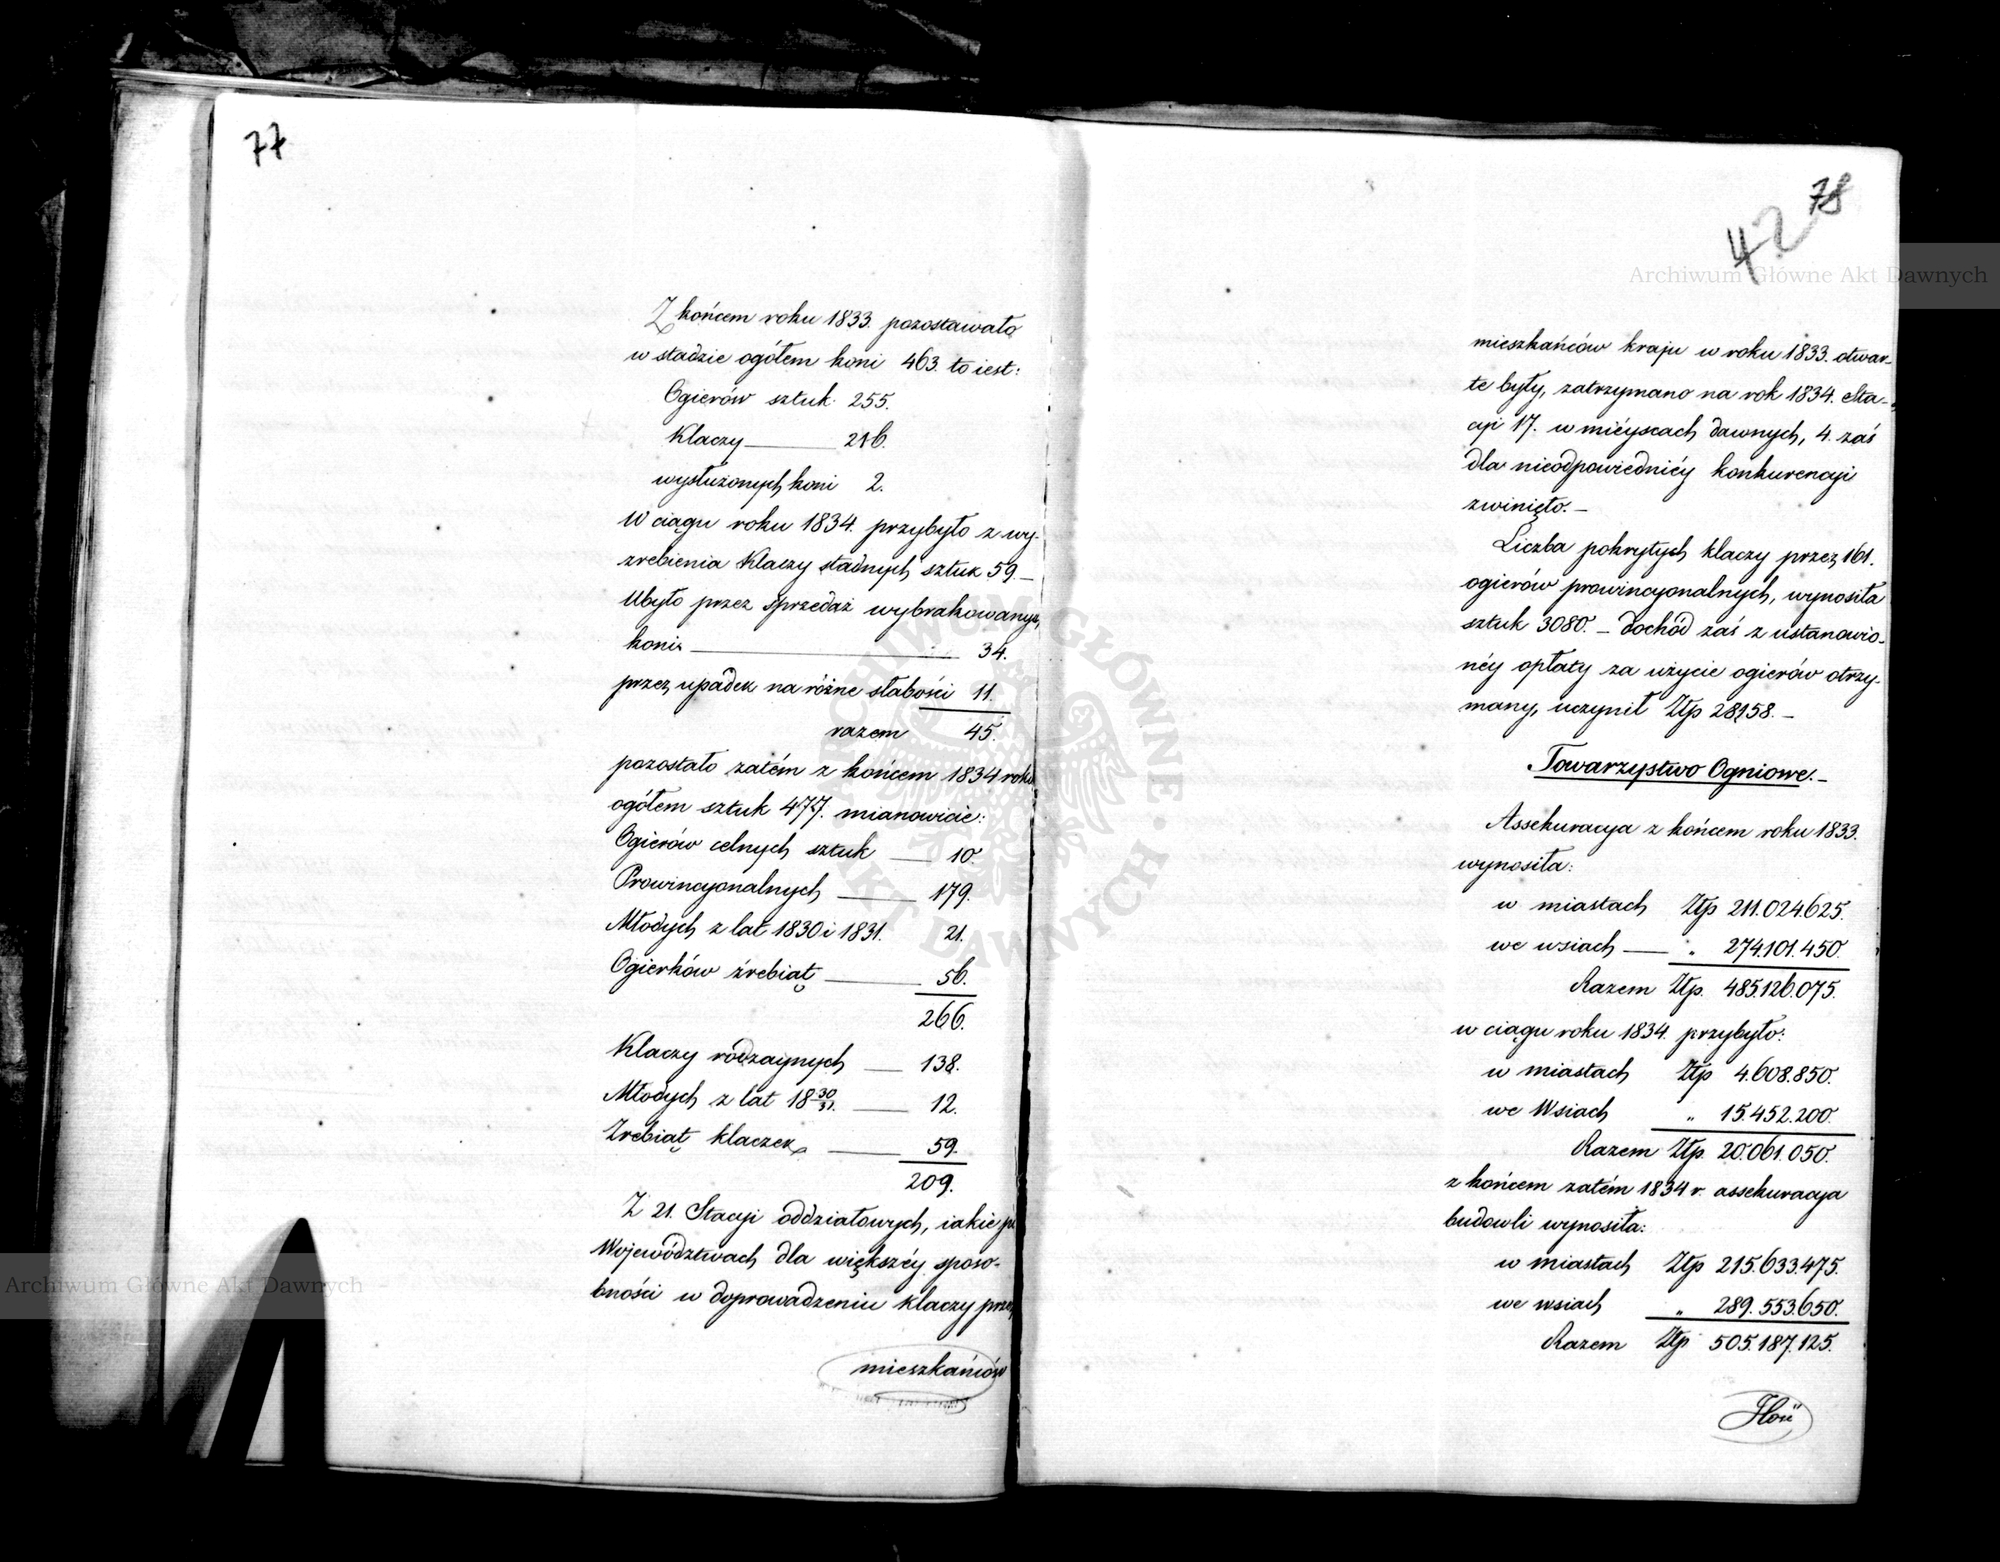 77
Z końcem roku 1833. pozostawało
w stadzie ogółem koni 463. to iest:
Ogierów sztuk. 255.
Klaczy 216.
wysłużonych koni 2.
W ciągu roku 1834. przybyło z wy-
zrebienia Klaczy stadnych sztuk 59. —
Ubyło przez sprzedaż wybrakowanych
koni 34.
przez upadek na różne słabości 11.
razem 45.
pozostało zatém z końcem 1834 roku
ogółem sztuk 477. mianowicie:
Ogierów celnych sztuk — 10.
Prowincyonalnych — 179.
Młodych z lat 1830 i 1831. 21.
Ogierków źrebiąt — 56.
266.
Klaczy rodzaynych — 138.
Młodych z lat 18 30/31. — 12.
Zrebiąt klaczek — 59.
209.
Z 21. Stacyi oddziałowych, iakie po
Województwach dla większéy sposo-
bności w doprowadzeniu klaczy przez
mieszkańców
78
42
mieszkańców kraju w roku 1833. otwar-
te były, zatrzymano na rok 1834. Sta-
cyi 17. w miéyscach dawnych, 4. zaś
dla nieodpowiedniéy konkurencyi
zwinięto. —
Liczba pokrytych klaczy przez 161.
ogierów prowincyonalnych, wynosiła
sztuk 3080. — Dochód zaś z ustanowio-
néy opłaty za użycie ogierów otrzy-
many, uczynił Złp 28,158. —
Towarzystwo Ogniowe. —
Assekuracya z końcem roku 1833.
wynosiła:
w miastach Złp 211.024.625.
we wsiach — " 274.101.450.
Razem Złp. 485.126.075.
w ciągu roku 1834. przybyło:
w miastach Złp 4.608.850.
we Wsiach " 15.452.200.
Razem Złp. 20.061.050.
z końcem zatém 1834 r. assekuracya
budowli wynosiła:
w miastach Złp 215.633.475.
we wsiach " 289.553.650.
Razem Złp 505.187.125.
Archiwum Główne Akt Dawnych
Archiwum Główne Akt Dawnych
ARCHIWUM GŁÓWNE AKT DAWNYCH